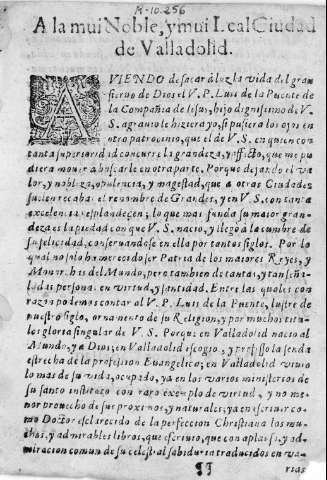 A-10.256
A la mui Noble, y mui Leal Ciudad
de Valladolid.
AVIENDO de sacar à luz la vida del gran
sieruo de Dios el V. P. Luis de la Puente de
la Compañia de Iesus, hijo dignissimo de V.
S. agrauio le hiziera yo, si pusiera los ojos en
otro patrocinio, que el de V. S. en quien con
tanta superioridad concurre la grandeza, y afecto, que me pu
diera mouer a buscarle en otra parte. Porque dejando el va
lor, y nobleza, opulencia, y magestad, que a otras Ciudades
suelen recabar el renombre de Grandes, y en V. S. con tanta
excelencia resplandecen; lo que mas funda su maior gran-
deza es la piedad con que V. S. nacio, y llegò a la cumbre de
su felicidad, conseruandose en ella por tantos siglos. Por lo
qual no solo ha merecido ser Patria de los maiores Reyes, y
Monarchas del Mundo, pero tambien de tantas, y tan señala
ladas personas en virtud, y santidad. Entre las quales con
razon podemos contar al V. P. Luis de la Puente, lustre de
nuestro siglo, ornamento de su Religion, y por muchos titu
los gloria singular de V. S. Porque en Valladolid nacio al
Mundo, y a Dios; en Valladolid escogio, y professo la senda
estrecha de la profession Euangelica; en Valladolid viuio
lo mas de su vida, ocupado, ya en los varios ministerios de
su santo instituto con raro exemplo de virtud, y no me
nor prouecho de sus proximos, y naturales; ya en escriuir co-
mo Doctor esclarecido de la perfeccion Christiana los mu-
chos, y admirables libros, que escriuio, que con aplauso, y ad-
miracion comun de su celestial sabiduria traducidos en va-
¶¶ rias